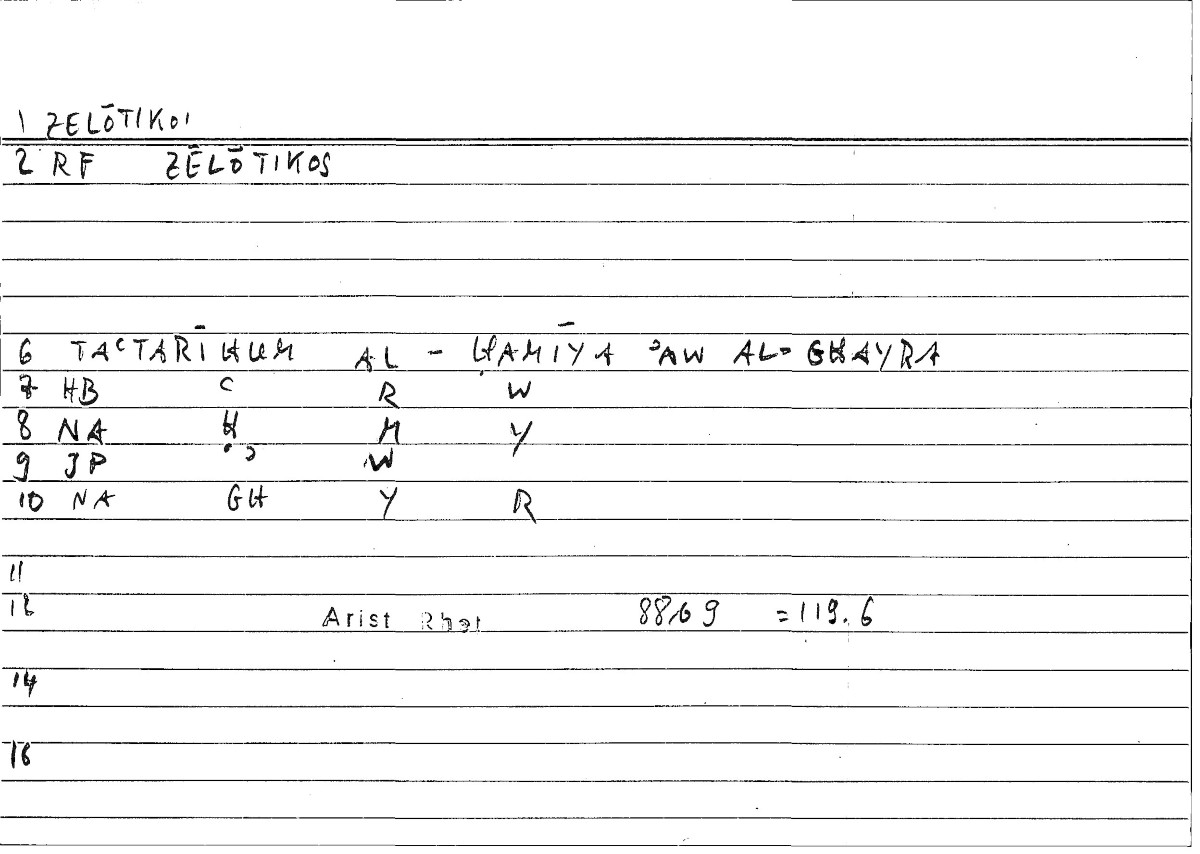 1 ZELŌTIKOI
2 RF ZĒLŌTIKOS
6 TAʿTARĪHUM AL - ḤAMĪYA ʾAW AL- GHAYRA
7 HB ʿ R W
8 NA Ḥ M Y
9 JP ʾ W
10 NA GH Y R
11
12 Arist Rhet 88b9 =119.6
14
16